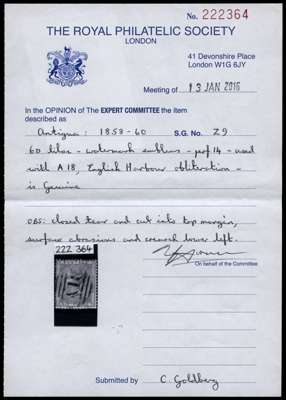 No. 222364
THE ROYAL PHILATELIC SOCIETY
LONDON
41 Devonshire Place
London W1G 6JY
Meeting of 13 JAN 2016
In the OPINION of The EXPERT COMMITTEE the item
described as
Antigua: 1858-60 S.G. No. Z9
6D lilac - watermark emblems - perf 14 - used
with A18, English Harbour obliteration -
is Genuine
OBS: closed tear and cut into top margin,
surface abrasions and crease lower left.
222 364
On behalf of the Committee
Submitted by C. Goldberg